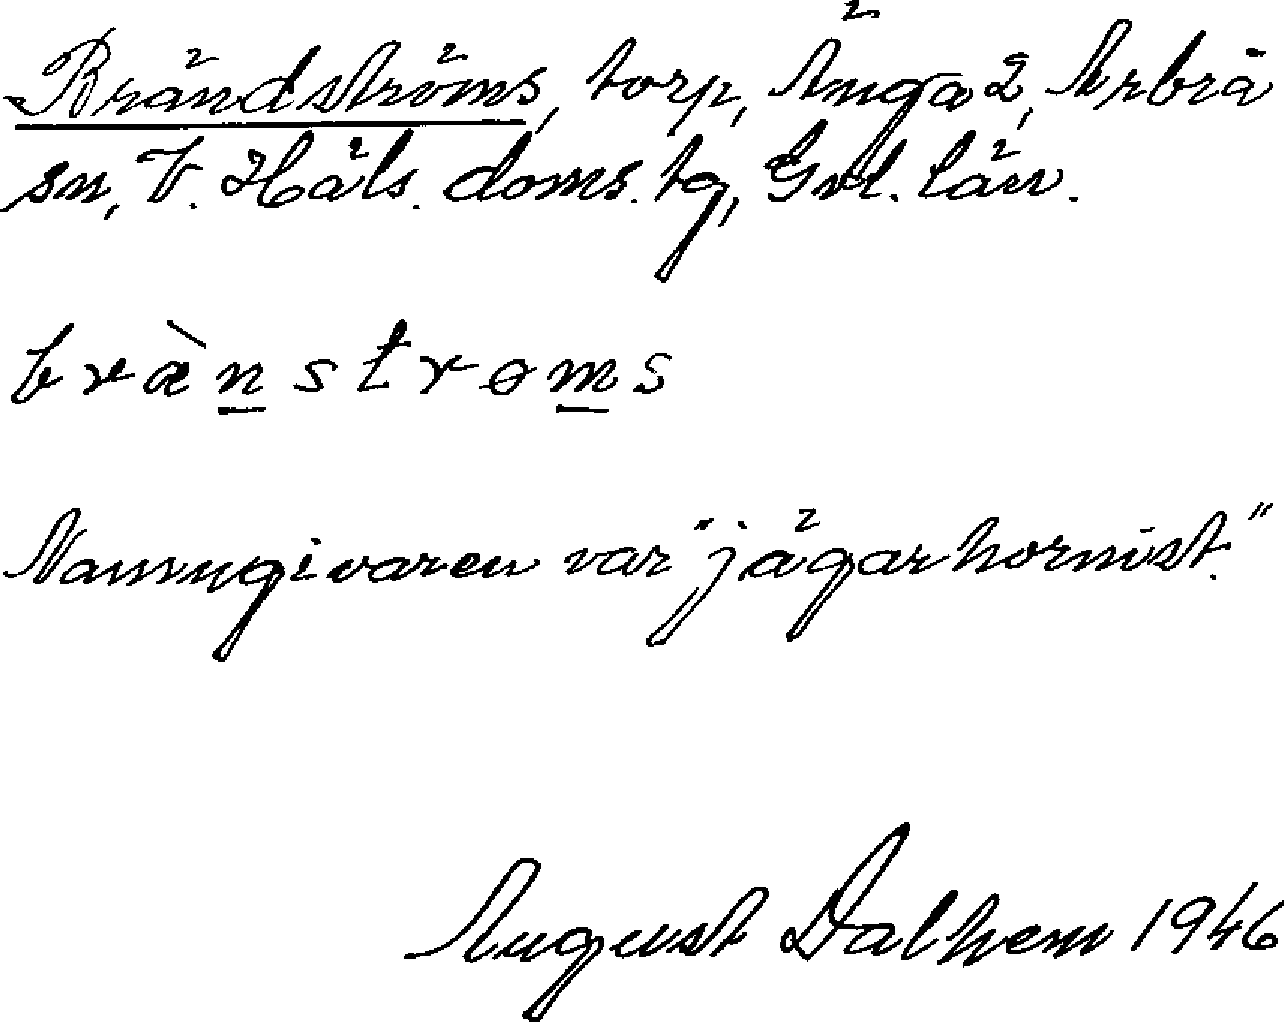 Brändströms, torp, Änga 2, Arbrå
sn, V. Häls. doms. tg, Gvl. län.
bræ̀n̲strøm̲s
Namngivaren var "jägarhornist."
August Dalhem 1946